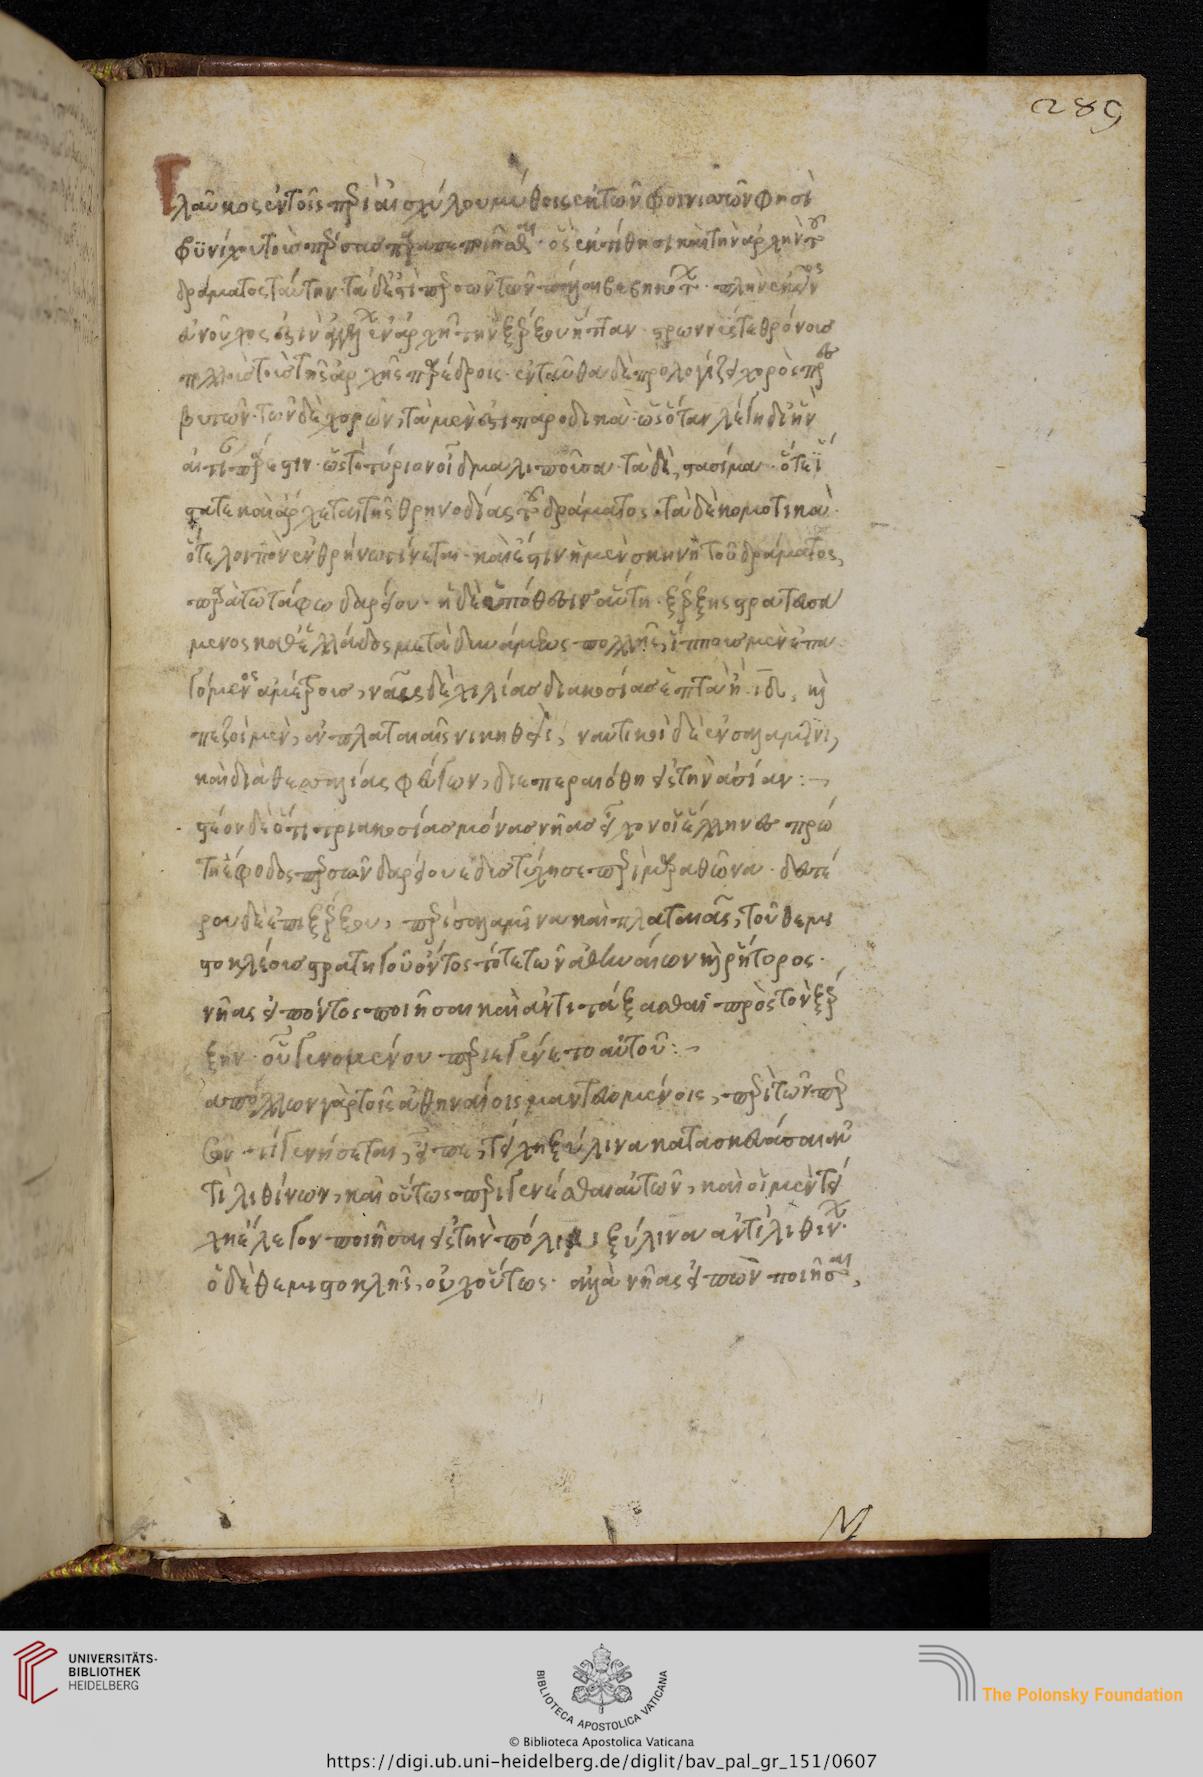 285
Γλαῦκος ἐν τοῖς περὶ αἰσχύλου μύθοις ἐκ τῶν φοινισσῶν φησὶ
φϋνίχου τοὺς πέρσας παραπεποιῆσθαι· ὃς ἐκτίθησι καὶ τὴν ἀρχὴν τοῦ
δράματος ταύτην· τάδ' ἐστὶ περσῶν τῶν πάλαι βεβηκότων· πλὴν ἐκεῖνος
εὐνοῦχός ἐστιν ἀγγέλλων ἐν ἀρχῇ τὴν ξέρξου ἧτταν· στρωννύς τε θρόνους
τοῖς τῆς ἀρχῆς παρέδροις· ἐνταῦθα δὲ προλογίζει χορὸς πρεσ
βυτῶν· τῶν δὲ χορῶν, τὰ μέν ἐστι παροδικὰ· ὡς ὅταν λέγῃ δι' ἣν
αἰτίαν πάρεστιν· ὡς τὸ τύριον οἶδμα λιποῦσα· τὰ δὲ, στασίμα· ὅτε ἵ
σταται καὶ ἄρχεται τῆς θρηνοδίας τοῦ δράματος· τὰ δὲ κομοτικὰ·
ὅτε λοιπὸν ἐν θρήνω γίνεται· καὶ ἔστιν ἡ μὲν σκηνὴ τοῦ δράματος,
παρὰ τῶ τάφω δαρείου· ἡ δὲ ὑπόθεσις αὕτη· ξέρξης στρατευσά
μενος καθ' ἑλλάδος μετὰ δυνάμεως πολλῆς, ἵππους μὲν ἐπα
γόμενος ἀμέτρους, νάες δὲ χιλίας διακοσίας ἑπτὰ ἢ ιδ, καὶ
πεζοὶ μὲν, ἐν πλαταιαῖς νικηθεὶς, ναυτικοὶ δὲ ἐν σαλαμῖνι,
καὶ διὰ θεσσαλίας φεύγων, διεπεραιώθη εἰς τὴν ἀσίαν:
ἰστέον δὲ ὅτι τριακοσίας μόνας νῆας εἶχον οἱ ἕλληνες πρώ
τη ἔφοδος περσῶν δαρείου ἐδιστύχησε περὶ μαραθῶνα· δευτέ
ρου δὲ ἐπὶ ξέρξου, περὶ σαλαμῖνα καὶ πλαταιάς, τοῦ θεμι
στοκλέους στρατηγοῦ ὄντος τότε τῶν ἀθηναίων καὶ ῥήτορος·
νῆας εἰπόντος ποιῆσαι καὶ ἀντιτάξασθαι πρὸς τὸν ξέρ
ξην· οὗ γενομένου περιεγένετο αὐτοῦ:
ἀπόλλων γὰρ τοῖς ἀθηναίοις μαντευομένοις, περὶ τῶν περ
σῶν τί γενήσεται, εἶπε, τείχη ξύλινα κατασκευάσαι ἀν
τὶ λιθίνων, καὶ οὕτως περιγενέσθαι αὐτῶν, καὶ οἱ μὲν τεί
χη ἔλεγον ποιῆσαι εἰς τὴν πόλιν ξύλινα ἀντὶ λιθίνων·
ὁ δὲ θεμιστοκλῆς, οὐχ οὕτως· ἀλλὰ νῆας εἰπὼν ποιῆσαι,
UNIVERSITÄTS-
BIBLIOTHEK
HEIDELBERG
BIBLIOTECA APOSTOLICA VATICANA
The Polonsky Foundation
© Biblioteca Apostolica Vaticana
https://digi.ub.uni-heidelberg.de/diglit/bav_pal_gr_151/0607